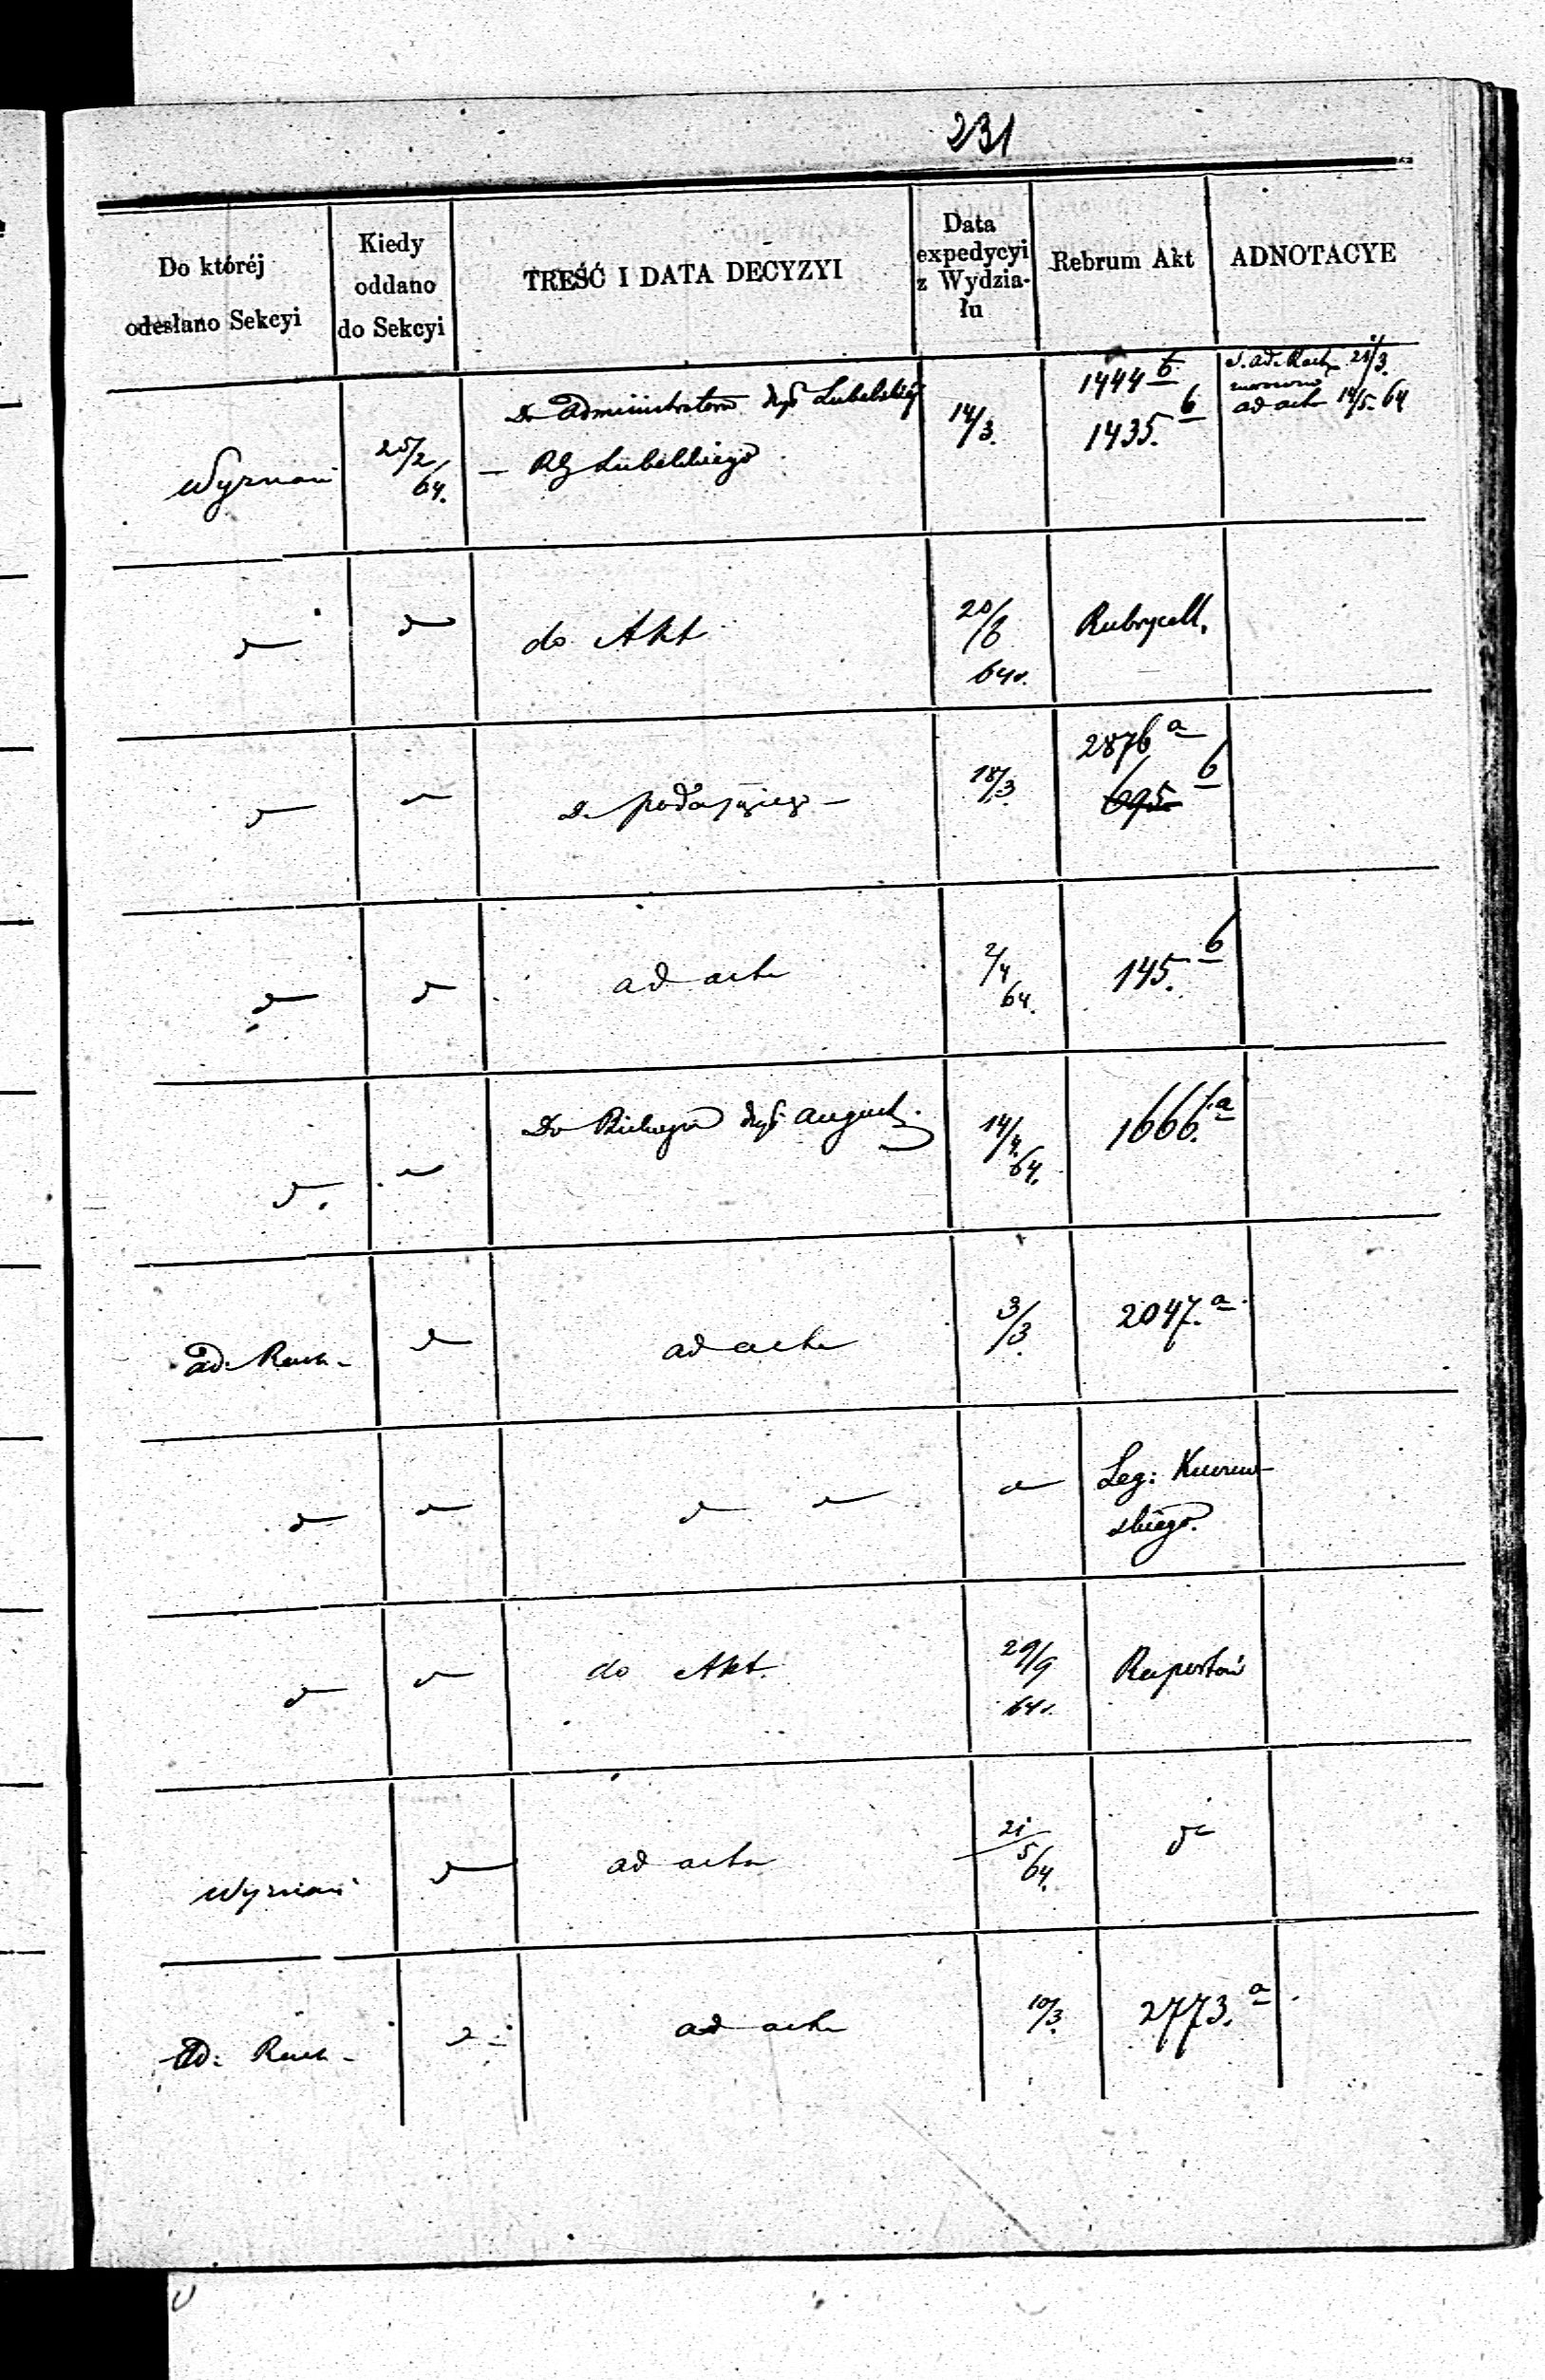 231
Do któréj odesłano Sekcyi
Kiedy oddano do Sekcyi
TREŚĆ I DATA DECYZYI
Data expedycyi z Wydzia- łu
Rebrum Akt
ADNOTACYE
Wyznań
25/2 64.
Do Administratora dyec Lubelskiéj
— RG Lubelskiego
14/3.
1444 b
1435. b
21/3.
ad acta 14/5. 64
do Akt
20/8 64 r.
Rubrycell.
18/3
2876 a
695 b
ad acta
2/4 64.
145. b
Do Biskupa dyec August.
14/4. 64.
1666. a
ad. Rach-
ad acta
3/3.
2047. a
Leg: Kurow-
skiego.
do Akt.
29/9 64 r.
Raportów
Wyznań
ad acta
21/5 64.
Ad: Rach-
ad acta
10/3.
2773. a